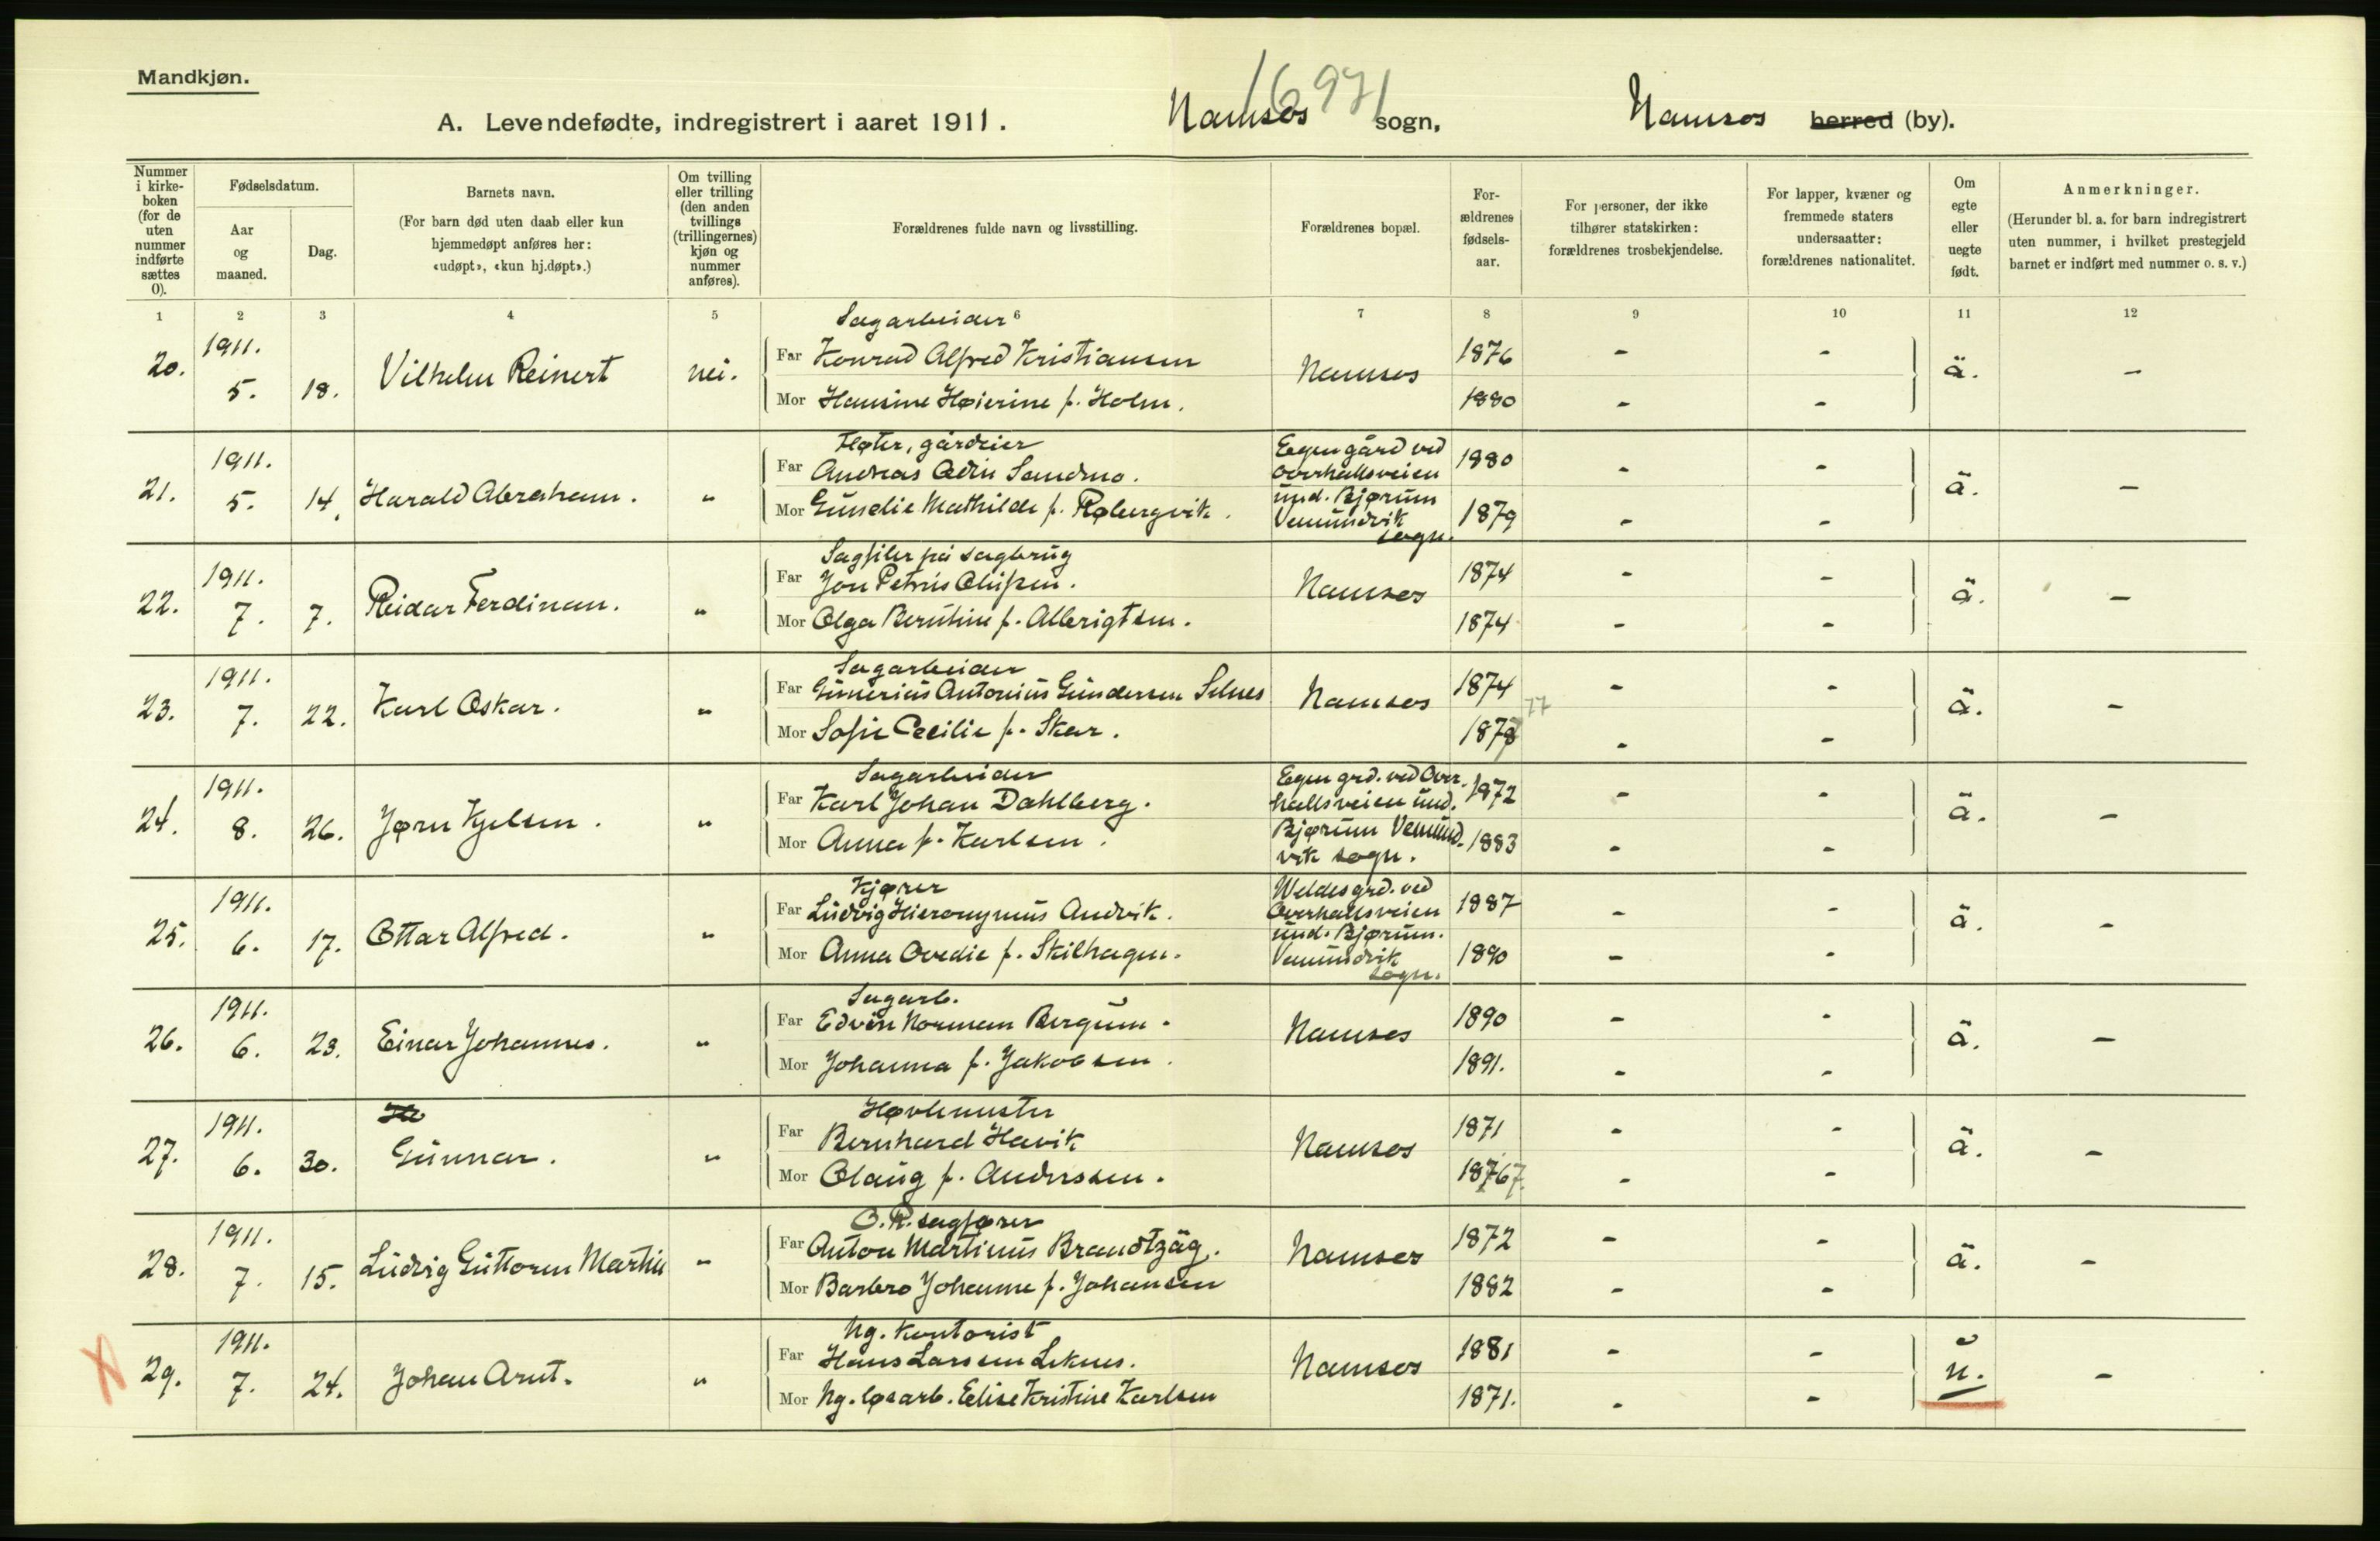 Mandkjøn.
16971
A. Levendefødte, indregistrert i aaret 1911. Namsos sogn, Namsos herred (by).
Nummer i kirkeboken (for de uten nummer indførte sættes 0).
Fødselsdatum.
Aar og maaned.
Dag.
Barnets navn.
(For barn død uten daab eller kun hjemmedøpt anføres her: «udøpt», «kun hj.døpt».)
Om tvilling eller trilling (den anden tvillings (trillingernes) kjøn og nummer anføres).
Forældrenes fulde navn og livsstilling.
Forældrenes bopæl.
For-ældrenes fødsels-aar.
For personer, der ikke tilhører statskirken: forældrenes trosbekjendelse.
For lapper, kvæner og fremmede staters undersaatter: forældrenes nationalitet.
Om egte eller uegte født.
Anmerkninger.
(Herunder bl. a. for barn indregistrert uten nummer, i hvilket prestegjeld barnet er indført med nummer o. s. v.)
1 2 3 4 5 6 7 8 9 10 11 12
Sagarbeider
20. 1911. 5. 18. Vilhelm Reinert nei. Far Konrad Alfred Kristiansen Namsos 1876 - - ä. -
Mor Hansine Høierine f. Holm. 1880 - -
Fløter, gårdeier
21. 1911. 5. 14. Harald Abraham. " Far Andreas Odin Sandmo. Egen gård ved Overhallsveien 1880 - - ä. -
Mor Gunelie Mathilde f. Røbergvik. und. Bjørum Vemundvik sogn. 1879 - -
Sagfiler på sagbrug
22. 1911. 7. 7. Reidar Ferdinan. " Far Jon Petrus Olufsen. Namsos 1874 - - ä. -
Mor Olga Bernthine f. Albrigtsen. 1874 - -
Sagarbeider
23. 1911. 7. 22. Karl Oskar. " Far Gunerius Antonius Gundersen Selnes Namsos 1874 - - ä. -
Mor Sofie Cecilie f. Skar. 1878 77 - -
Sagarbeider
24. 1911. 8. 26. Jørn Kjelsen. " Far Karl Johan Dahlberg. Egen grd. ved Over-hallsveien und. 1872 - - ä. -
Mor Anna f. Karlsen. Bjørum Vemund-vik sogn. 1883 - -
Kjører
25. 1911. 6. 17. Ottar Alfred. " Far Ludvig Hieronymus Andvik. Weldes grd. ved Overhallsveien 1887 - - ä. -
Mor Anna Ovedie f. Skilhagen. und. Bjørum. Vemundvik sogn. 1890 - -
Sagarb.
26. 1911. 6. 23. Einar Johannes. " Far Edvin Norman Bergum. Namsos 1890 - - ä. -
Mor Johanna f. Jakobsen. 1891. - -
Høvlemester
27. 1911. 6. 30. Gunnar. " Far Bernhard Havik Namsos 1871 - - ä. -
Mor Olaug f. Anderssen. 1876 7. - -
O.R.sagfører
28. 1911. 7. 15. Ludvig Guttorm Martin " Far Anton Martinus Brandtzäg. Namsos 1872 - - ä. -
Mor Barbro Johanne f. Johansen 1882 - -
Ug. Kontorist
29. 1911. 7. 24. Johan Arnt. " Far Hans Larssen Leknes. Namsos 1881 - - u. -
Mor Ug. løsarb. Elise Kristine Karlsen 1871. - -